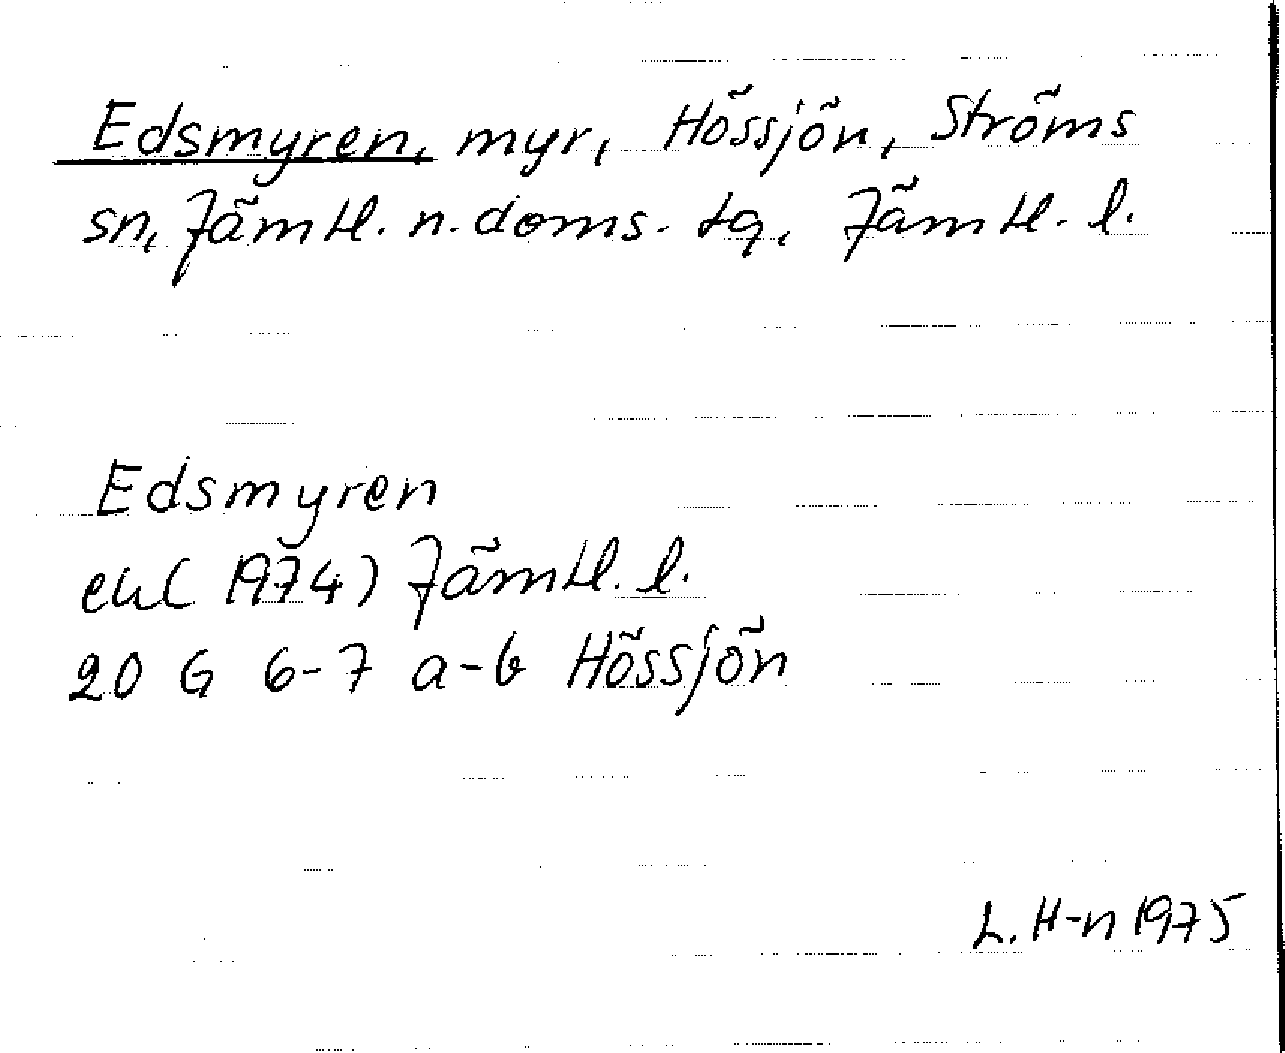 Edsmyren, myr, Hössjön, Ströms
sn, Jämtl. n. doms. tg, Jämtl. l.
Edsmyren
ek (1974) Jämtl. l.
20 G 6-7 a-b Hössjön
L. H-n 1975